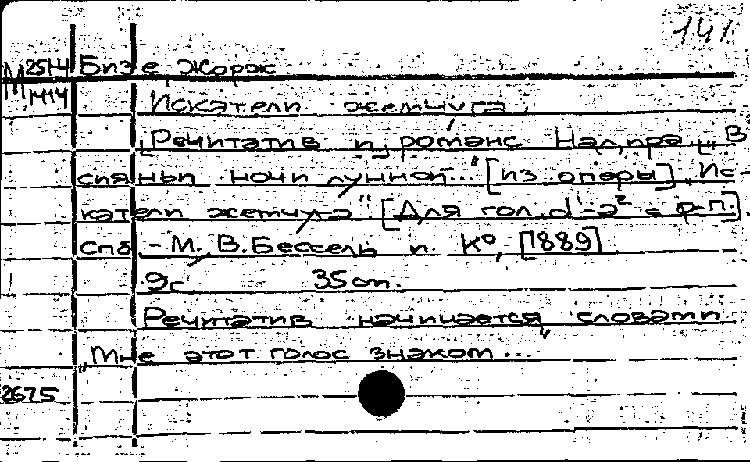 141
М 2514 Бизе, Жорж
1414 Искатели жемчуга.
[Речитатив и романс Надира „В
сияньи ночи лунной..." [из оперы] „Ис-
катели жемчуга" [Для гол. d'-a² с ф-п.]
Спб. - М., В. Бессель и К°, [1889]
9с 35 cm.
Речитатив начинается словами
„Мне этот голос знаком..."
2675